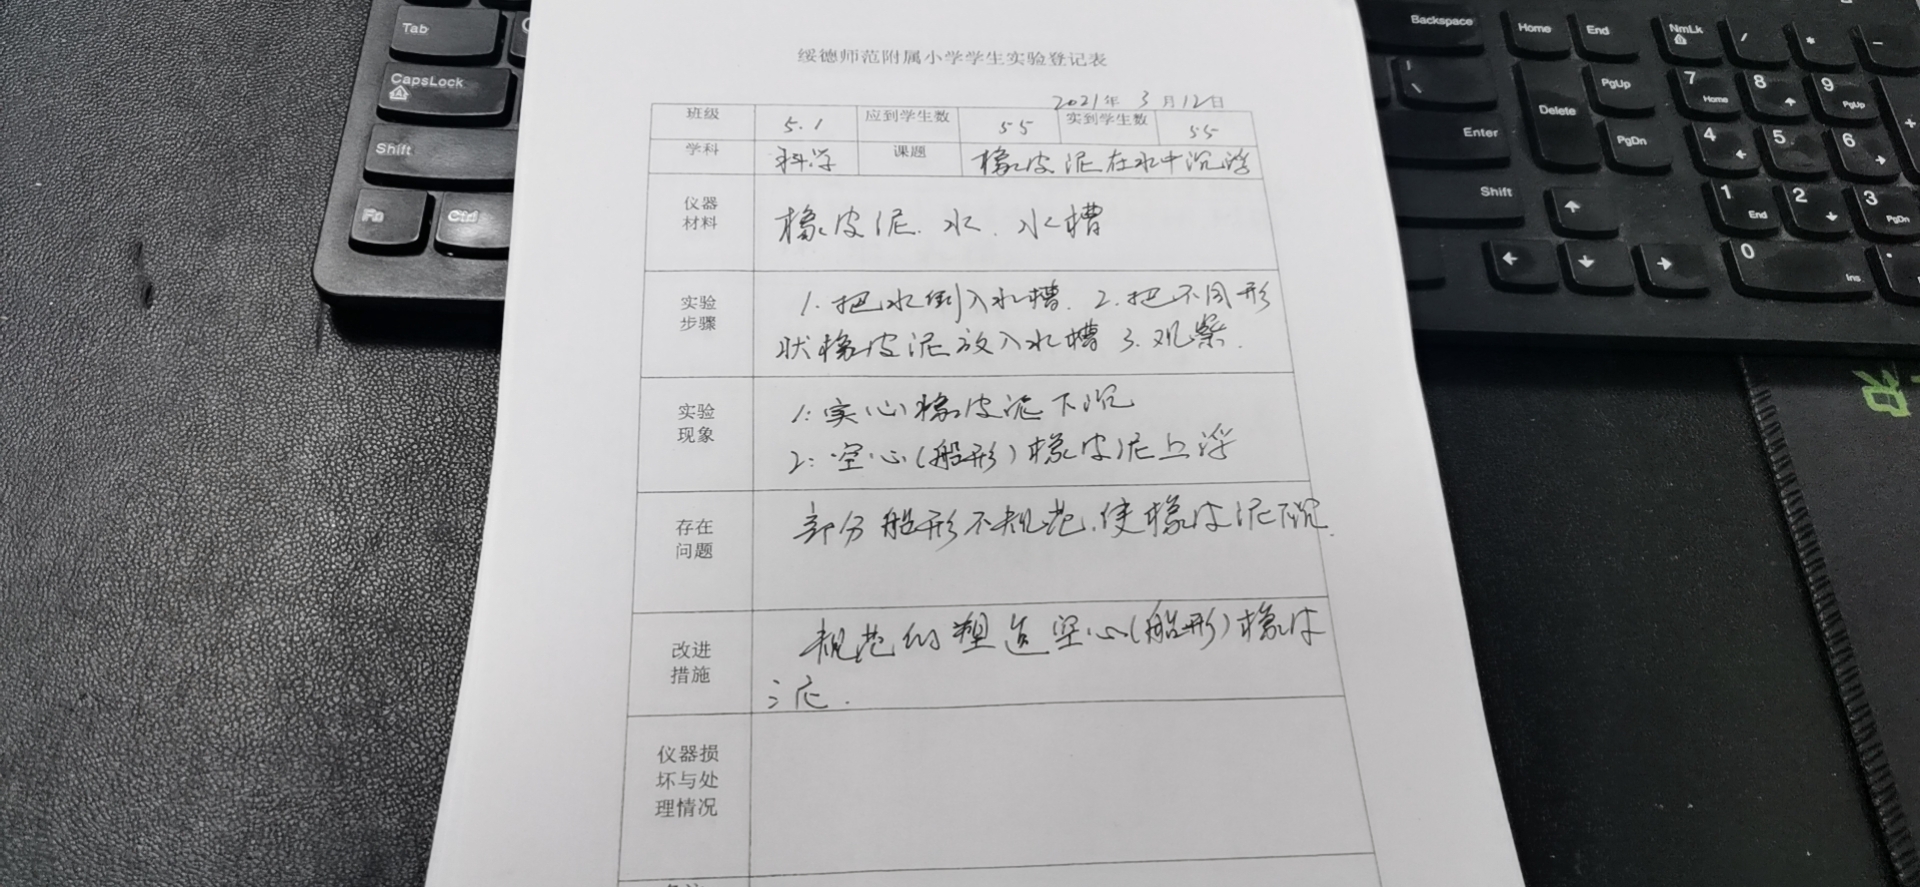 绥德师范附属小学学生实验登记表
2021年 3月12日
班级 5.1 应到学生数 55 实到学生数 55
学科 科学 课题 橡皮泥在水中沉浮
仪器
材料
橡皮泥、水、水槽
实验
步骤
1.把水倒入水槽. 2.把不同形
状橡皮泥放入水槽 3.观察.
实验
现象
1:实心橡皮泥下沉
2:空心(船形)橡皮泥上浮
存在
问题
部分船形不规范,使橡皮泥下沉.
改进
措施
规范的塑造空心(船形)橡皮
泥.
仪器损
坏与处
理情况
Tab
CapsLock
Shift
Fn Ctrl
Backspace
Enter
Shift
Home End
PgUp
Delete
PgDn
NmLk / * -
7 Home 8 9 PgUp
4 5 6 +
1 End 2 3 PgDn
0 Ins